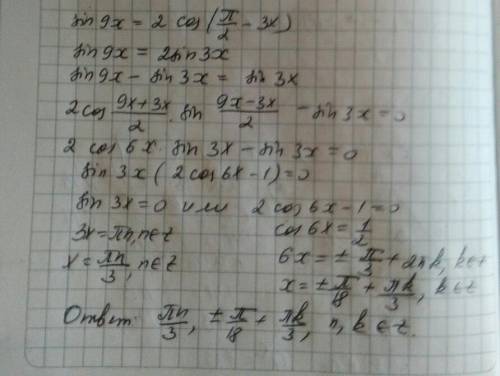 sin 9x = 2 cos (π/2 - 3x)
sin 9x = 2 sin 3x
sin 9x - sin 3x = sin 3x
2 cos (9x+3x)/2 · sin (9x-3x)/2 - sin 3x = 0
2 cos 6x · sin 3x - sin 3x = 0
sin 3x (2 cos 6x - 1) = 0
sin 3x = 0 или 2 cos 6x - 1 = 0
3x = πn, n∈z cos 6x = 1/2
x = πn/3, n∈z 6x = ± π/3 + 2πk, k∈z
x = ± π/18 + πk/3, k∈z
Ответ: πn/3, ± π/18 + πk/3, n, k ∈ z.